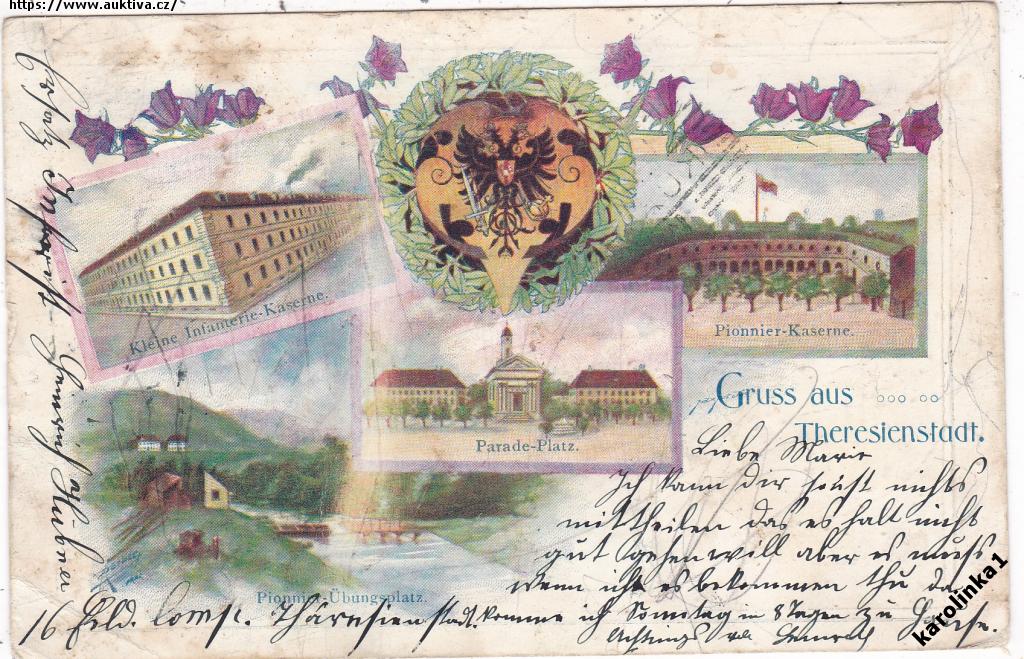 https://www.auktiva.cz/
Kleine Infanterie-Kaserne.
Pionnier-Kaserne.
Parade-Platz.
Gruss aus
Theresienstadt.
Pionnier-Übungsplatz.
Liebe Marie
Ich kann dir sonst nichts
mittheilen das es halt nicht
gut gehen will aber es muss
wenn ich es bekommen thu dan
komme ich Sonntag in 8 Tagen zu Hause.
Achtungs
16 Feld. Comp. Theresienstadt.
Heinrich Hübner
karolinka1